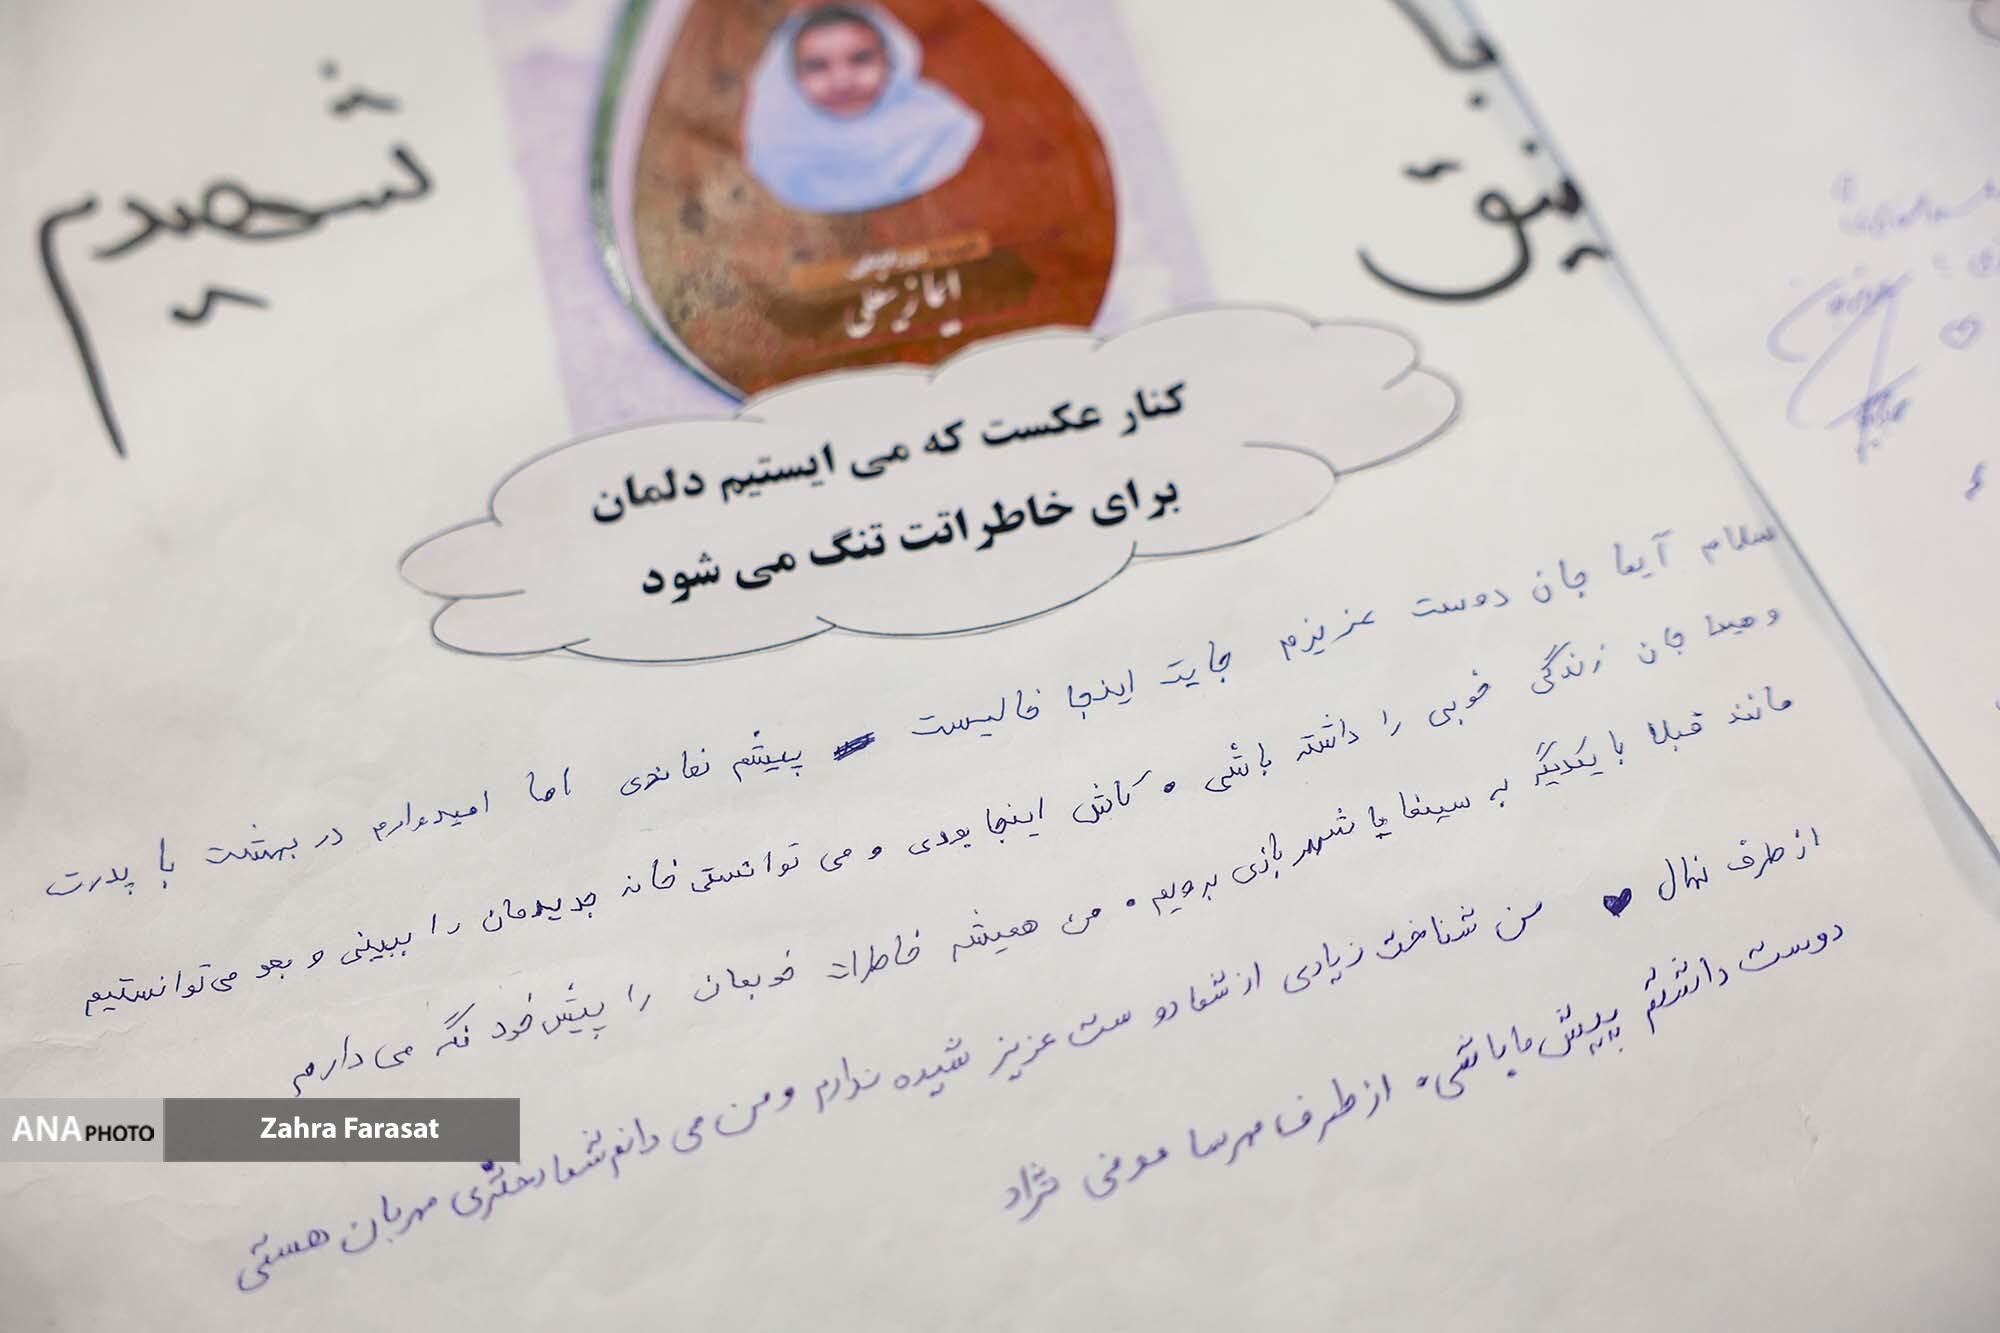 شهیدم
ایما زینلی
کنار عکست که می ایستیم دلمان
برای خاطراتت تنگ می شود
سلام آیما جان دوست عزیزم جایت اینجا خالیست پیشم نماندی اما امیدوارم در بهشت با پدرت
و هیما جان زندگی خوبی را داشته باشی . کاش اینجا بودی و می توانستی خانه جدیدمان را ببینی و بعد می توانستیم
مانند قبلا با یکدیگر به سینما یا شهر بازی برویم . من همیشه خاطرات خوبمان را پیش خود نگه می دارم
از طرف نهال ♥ من شناخت زیادی از شما دوست عزیز شهیده ندارم و من می دانم شما دختری مهربان هستی
دوست داشتم پیش ما باشی . از طرف مهرسا مومنی نژاد
ANA PHOTO
Zahra Farasat